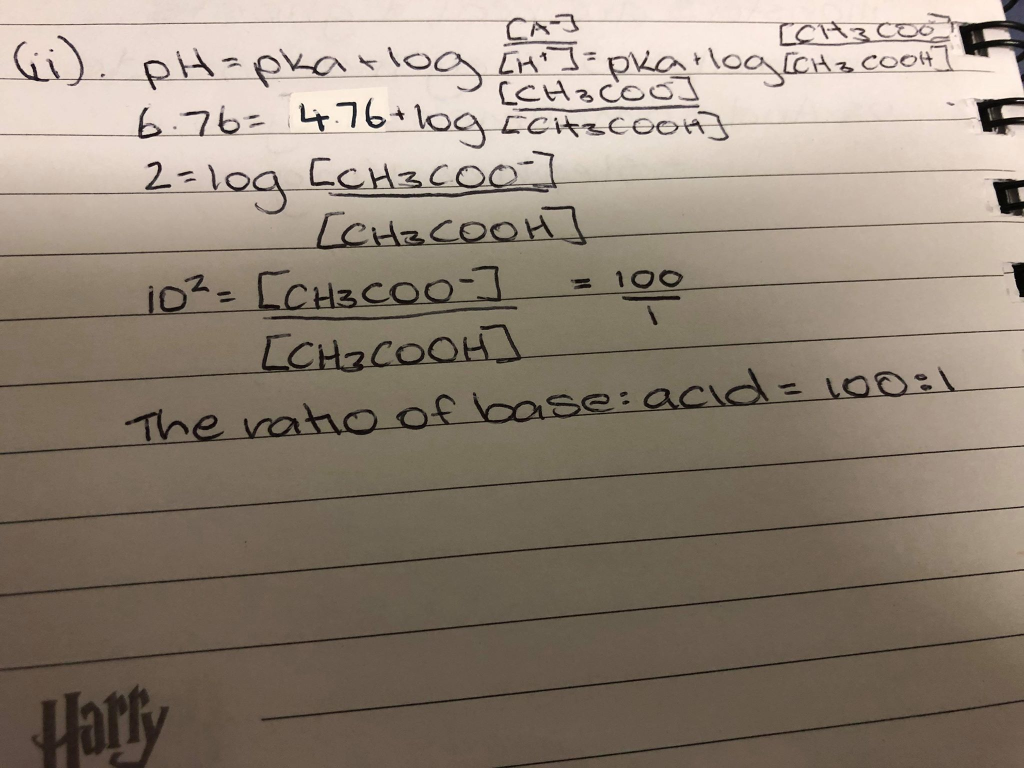 (ii). pH = pKa + log [A⁻]/[H⁺] = pKa + log [CH3COO⁻]/[CH3COOH]
6.76 = 4.76 + log [CH3COO]/[CH3COOH]
2 = log [CH3COO⁻]
[CH3COOH]
10² = [CH3COO⁻] = 100/1
[CH3COOH]
The ratio of base: acid = 100:1
Harry